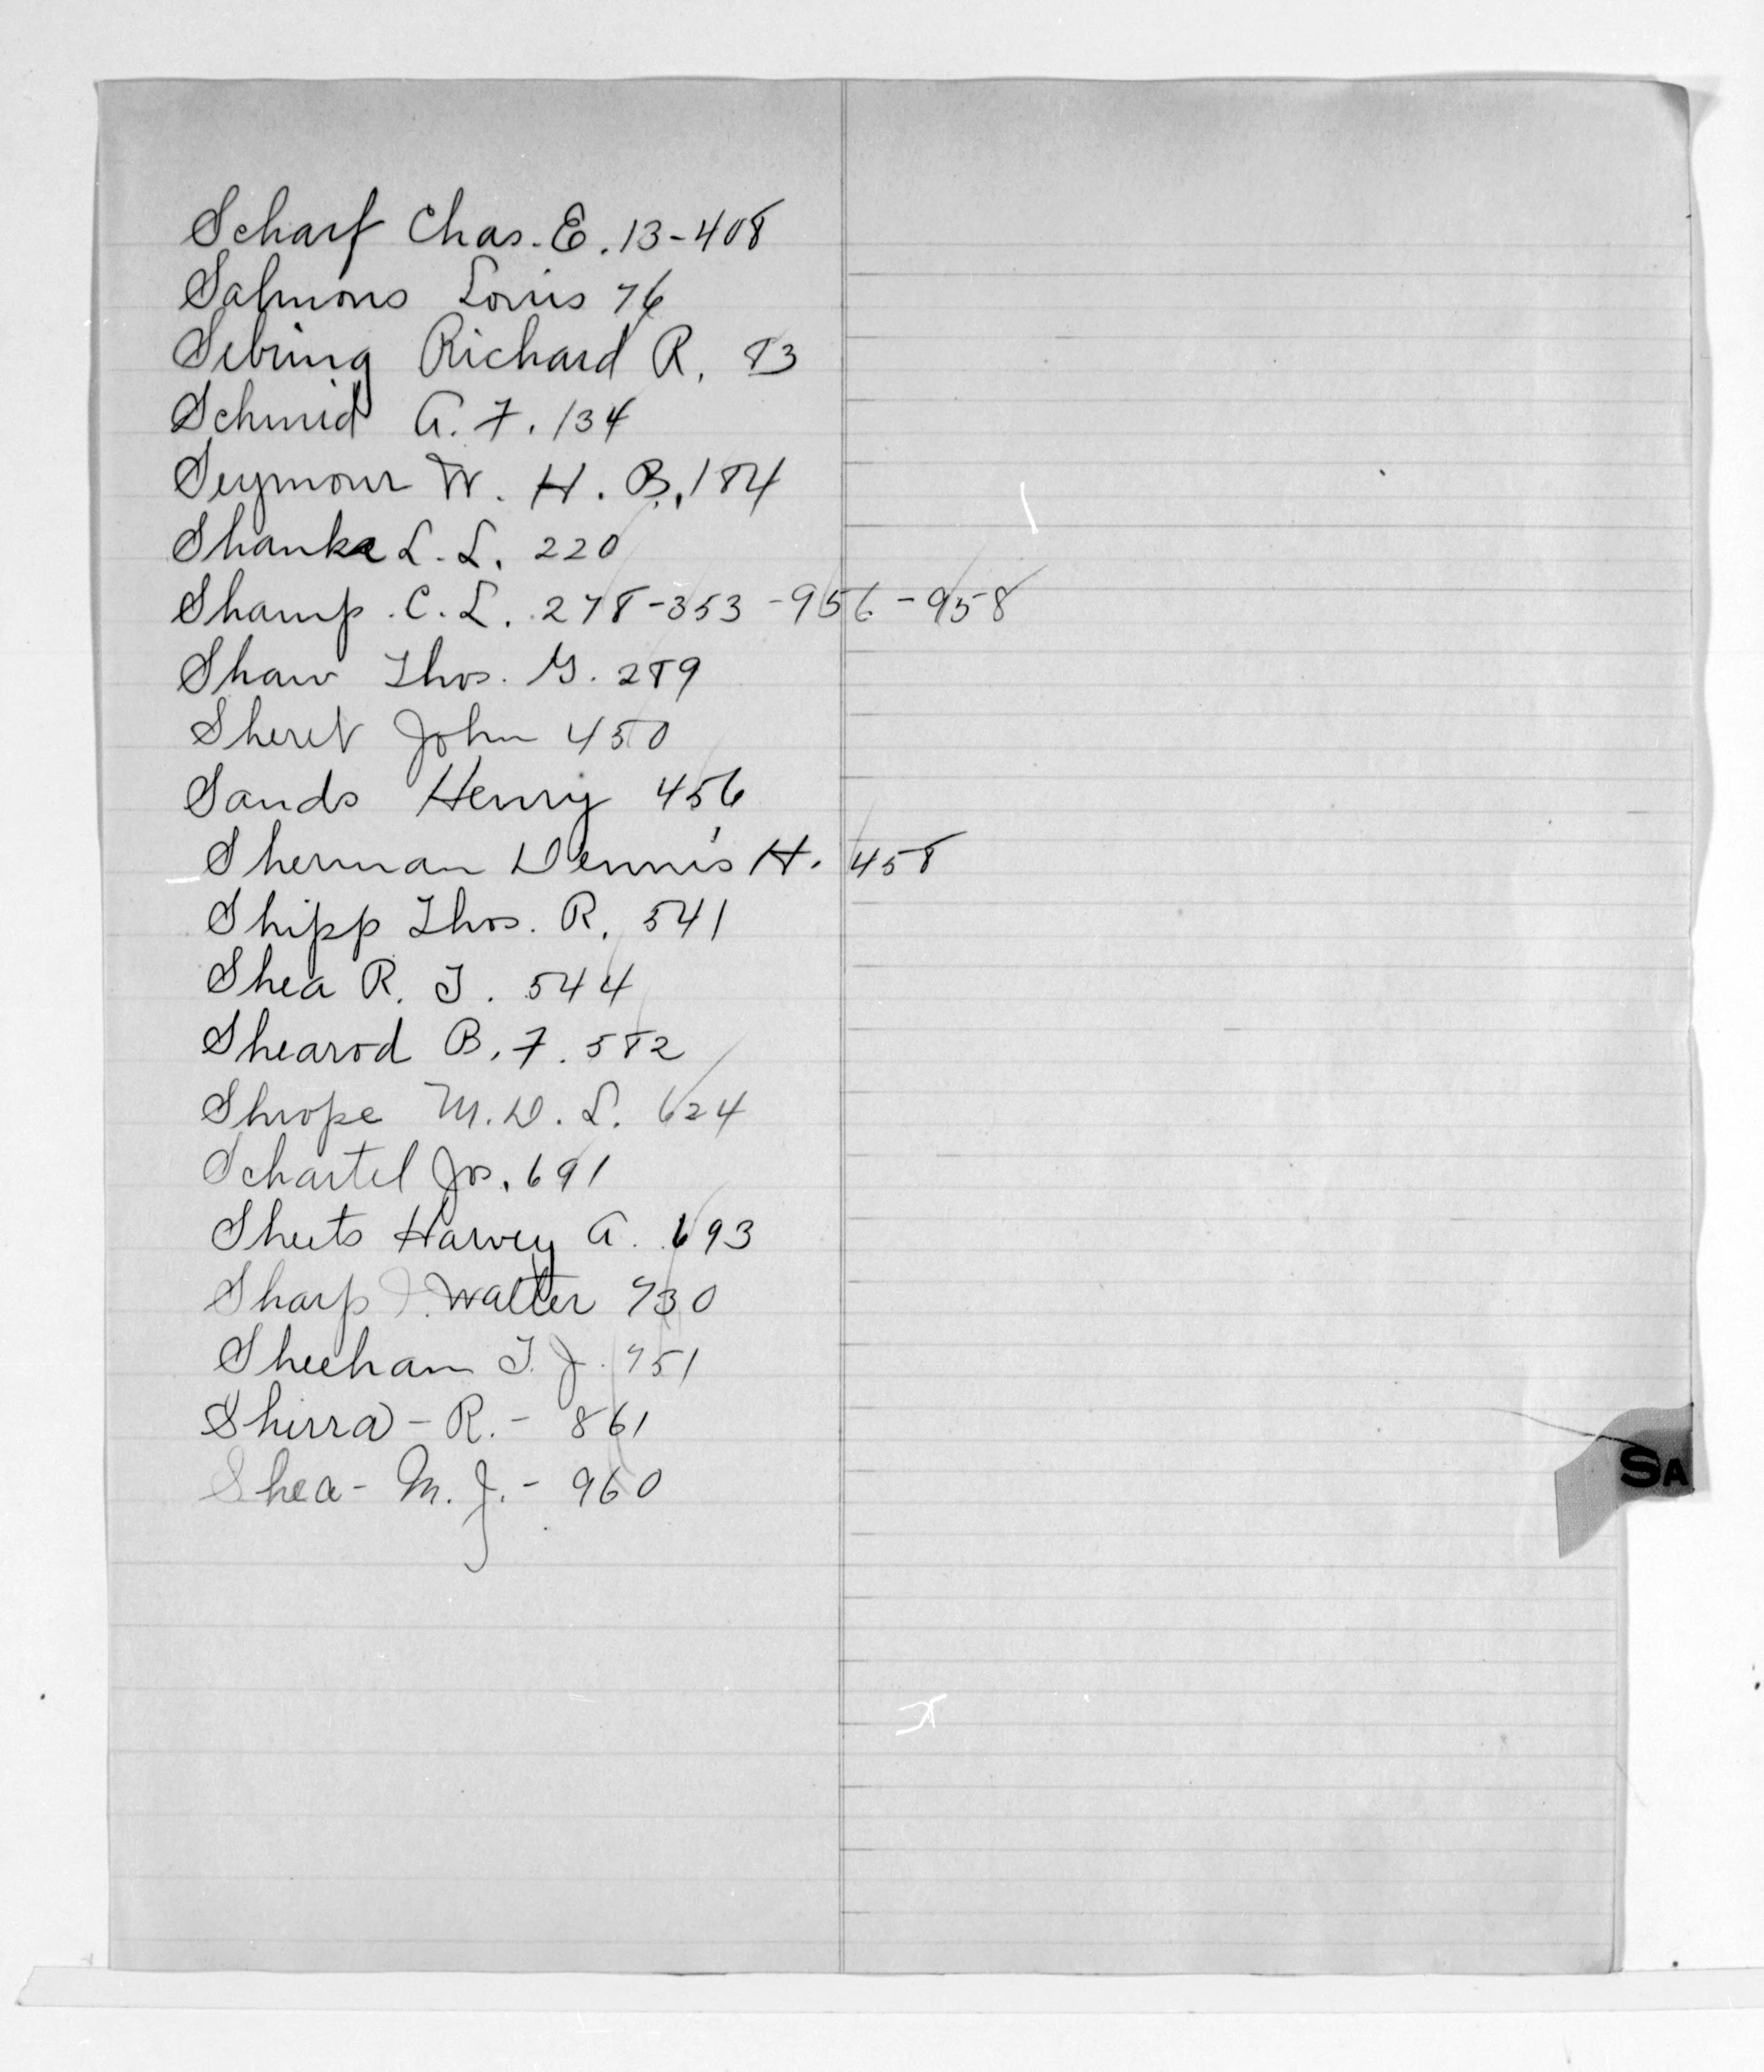 Scharf Chas. E. 13-408
Salmons Louis 76
Sebring Richard R. 83
Schmid A. F. 134
Seymour W. H. B. 184
Shanks L. L. 220
Shamp C. L. 278-353-956-958
Shaw Thos. G. 289
Sheret John 450
Sands Henry 456
Sherman Dennis H. 458
Shipp Thos. R. 541
Shea R. T. 544
Shearod B. F. 582
Shrope M. D. L. 624
Schartel Jos. 691
Sheets Harvey A. 693
Sharp J. Walter 730
Sheehan T. J. 751
Shirra - R. - 861
Shea - M. J. - 960
SA